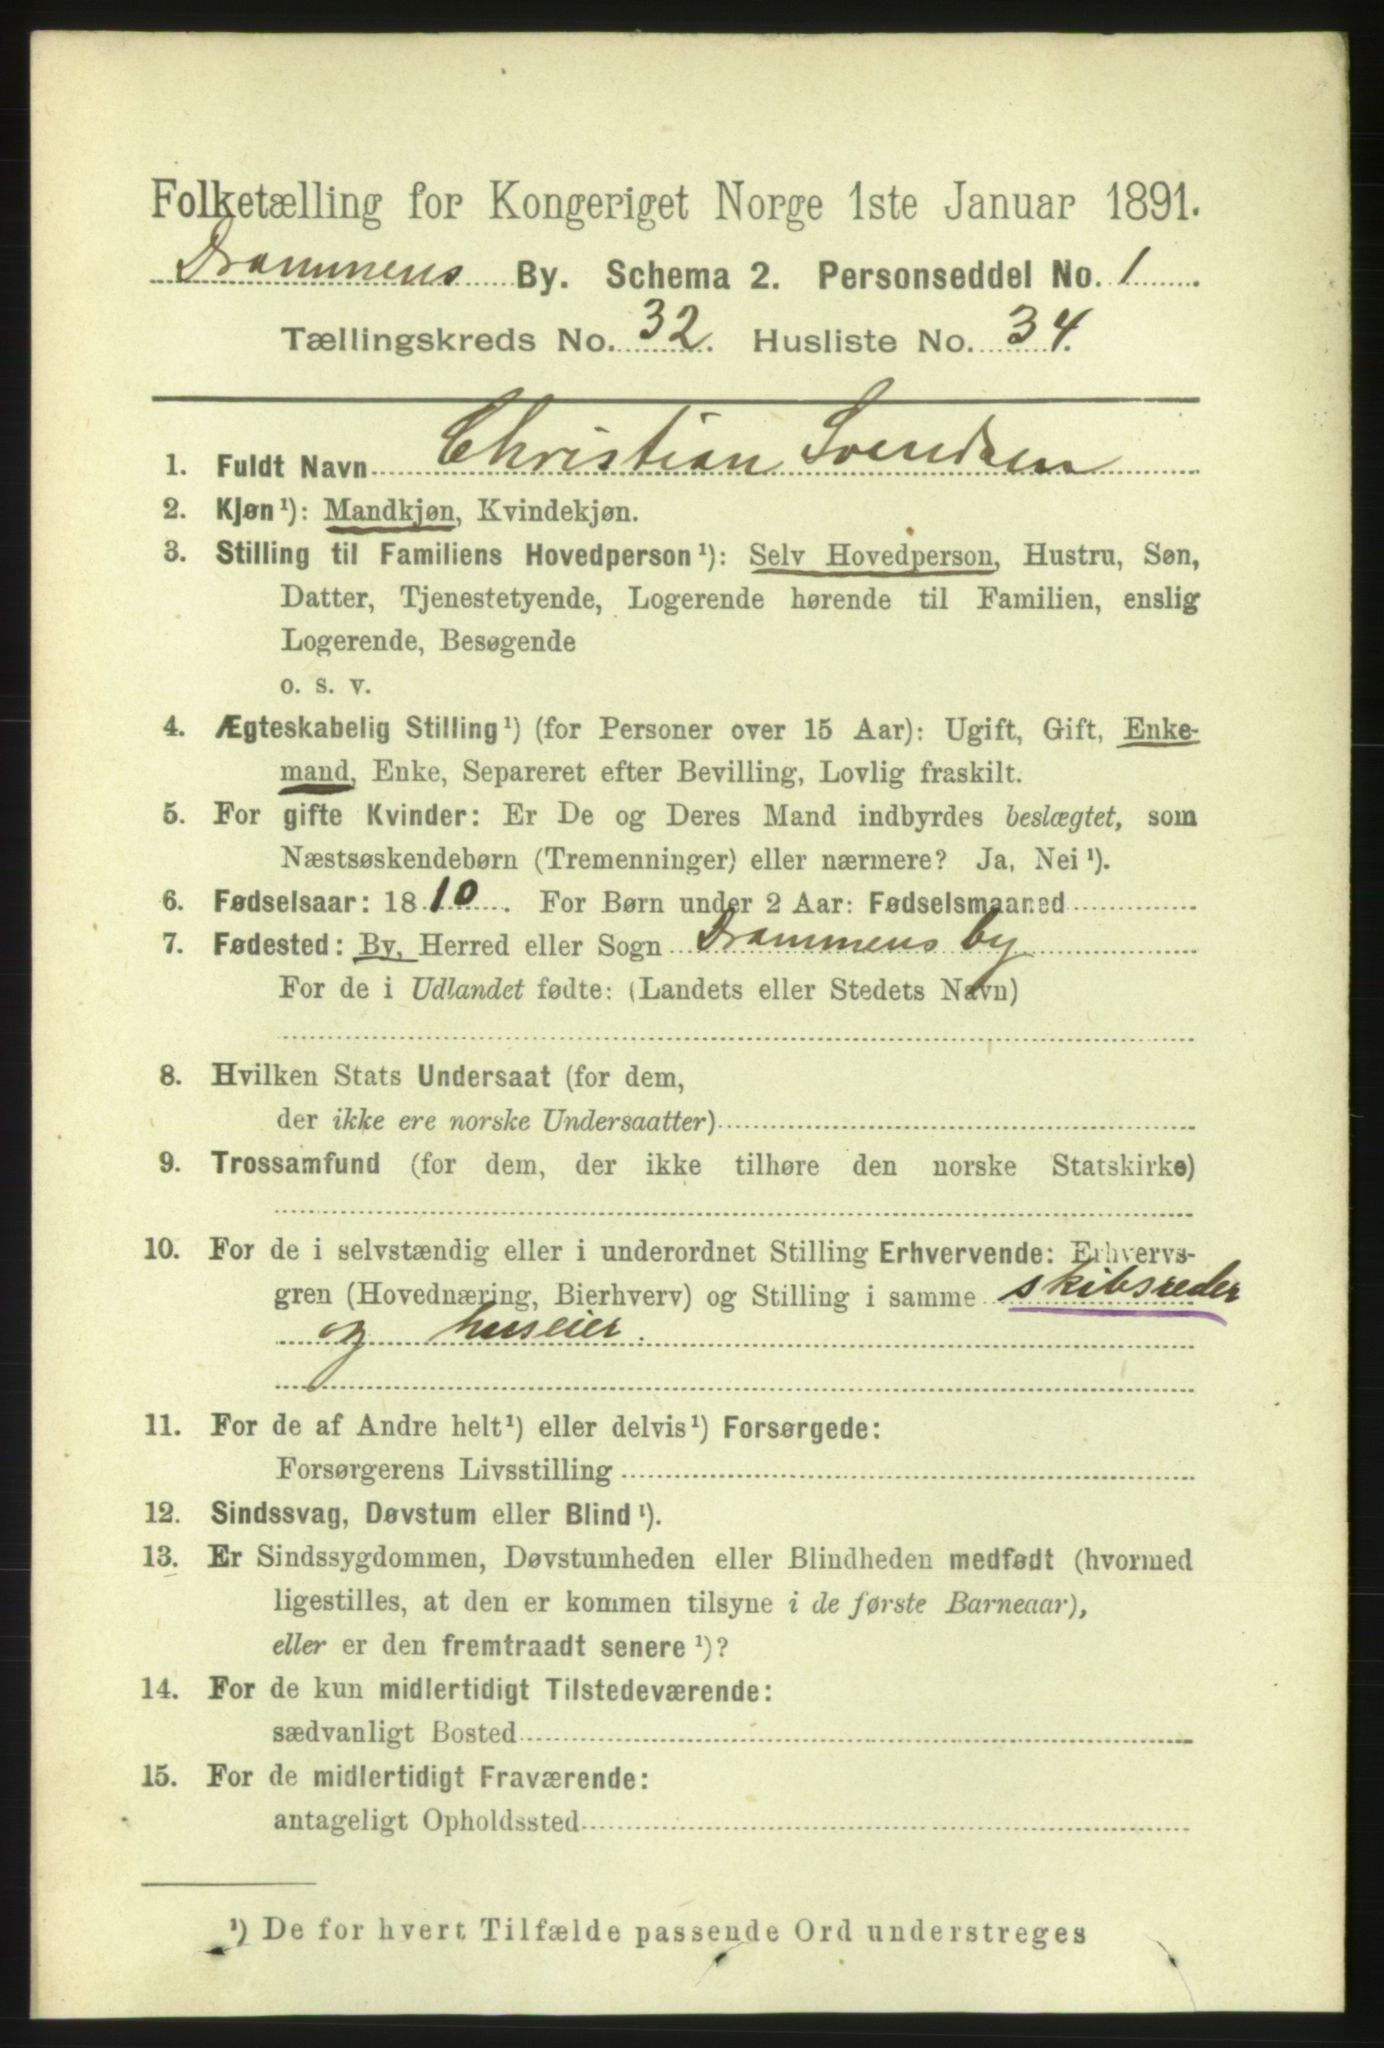 Folketælling for Kongeriget Norge 1ste Januar 1891.
Drammens By. Schema 2. Personseddel No. 1
Tællingskreds No. 32. Husliste No. 34.
1. Fuldt Navn Christian Svendsen
2. Kjøn¹): Mandkjøn, Kvindekjøn.
3. Stilling til Familiens Hovedperson¹): Selv Hovedperson, Hustru, Søn,
Datter, Tjenestetyende, Logerende hørende til Familien, enslig
Logerende, Besøgende
o. s. v.
4. Ægteskabelig Stilling¹) (for Personer over 15 Aar): Ugift, Gift, Enke-
mand, Enke, Separeret efter Bevilling, Lovlig fraskilt.
5. For gifte Kvinder: Er De og Deres Mand indbyrdes beslægtet, som
Næstsøskendebørn (Tremenninger) eller nærmere? Ja, Nei¹).
6. Fødselsaar: 1810. For Børn under 2 Aar: Fødselsmaaned
7. Fødested: By, Herred eller Sogn Drammens by
For de i Udlandet fødte: (Landets eller Stedets Navn)
8. Hvilken Stats Undersaat (for dem,
der ikke ere norske Undersaatter)
9. Trossamfund (for dem, der ikke tilhøre den norske Statskirke)
10. For de i selvstændig eller i underordnet Stilling Erhvervende: Erhvervs-
gren (Hovednæring, Bierhverv) og Stilling i samme skibsreder
og huseier.
11. For de af Andre helt¹) eller delvis¹) Forsørgede:
Forsørgerens Livsstilling
12. Sindssvag, Døvstum eller Blind¹).
13. Er Sindssygdommen, Døvstumheden eller Blindheden medfødt (hvormed
ligestilles, at den er kommen tilsyne i de første Barneaar),
eller er den fremtraadt senere¹)?
14. For de kun midlertidigt Tilstedeværende:
sædvanligt Bosted
15. For de midlertidigt Fraværende:
antageligt Opholdssted
¹) De for hvert Tilfælde passende Ord understreges